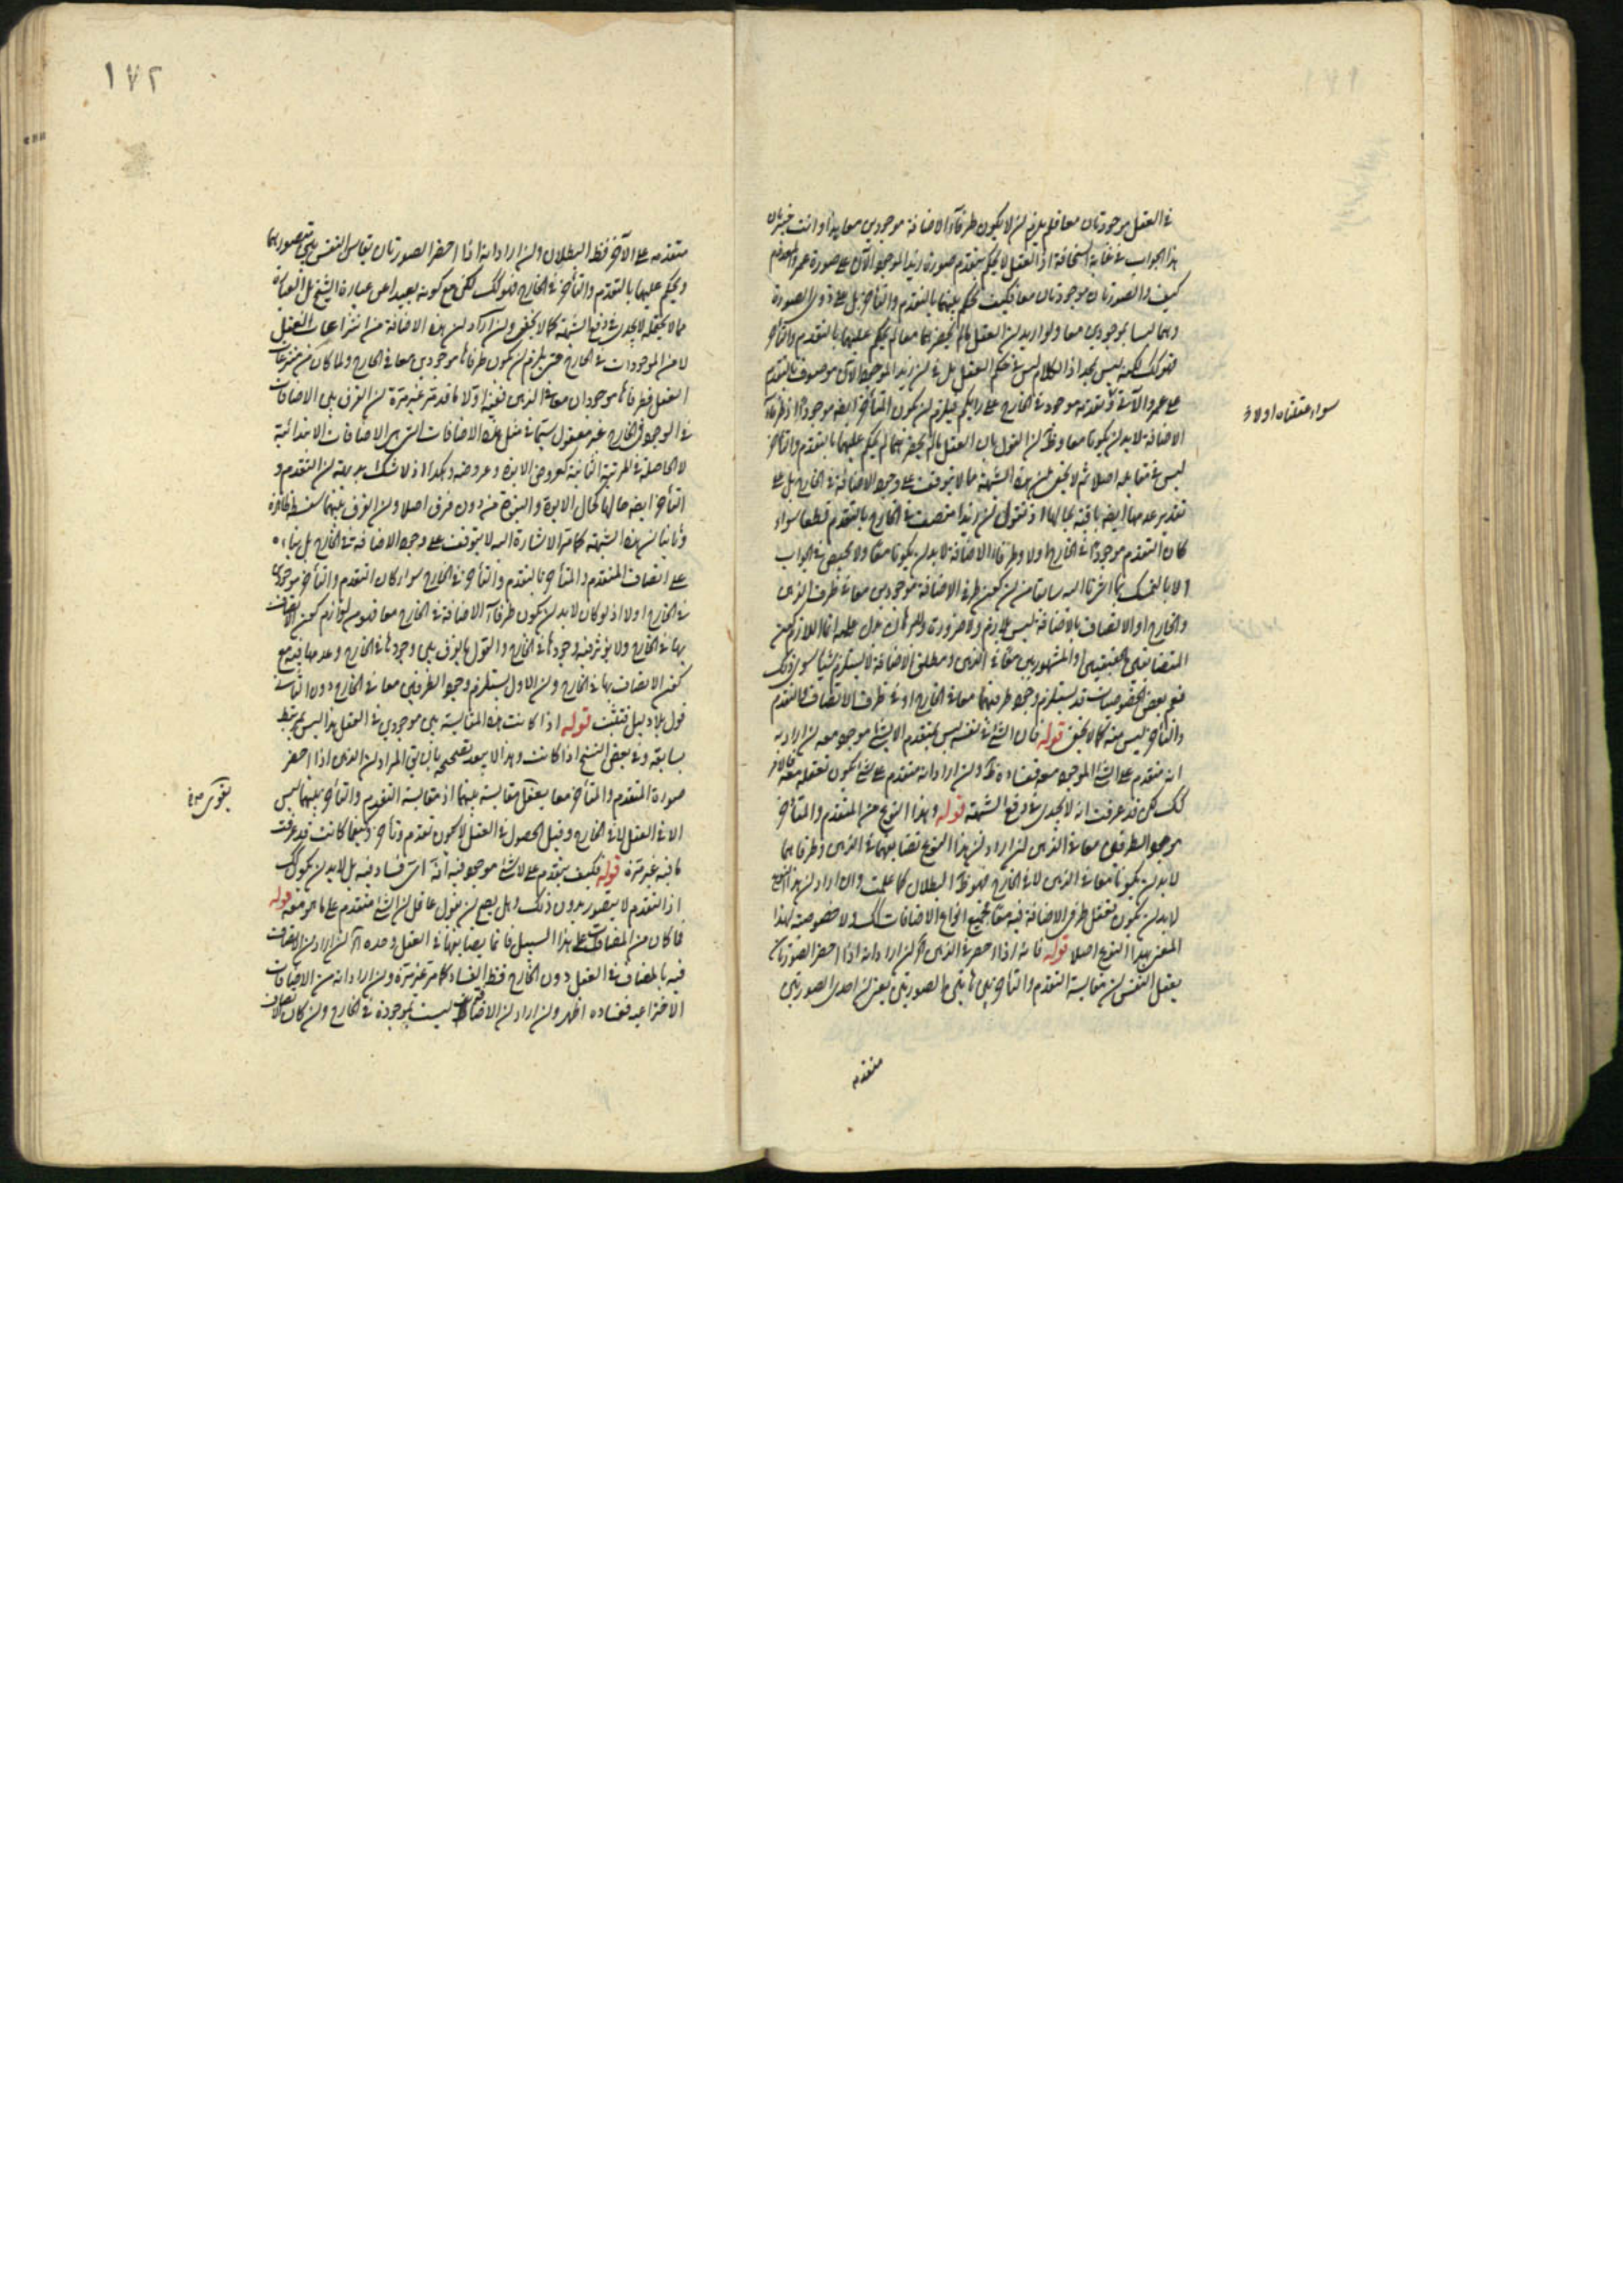 في العقل موجودتان معا فلم يلزم ان لا يكون طرفا الاضافة موجودين معا هذا وانت خبير بان
هذا الجواب في غاية السخافة اذ العقل لا يحكم بتقدم صورة زيد الموجود الآن على صورة عمرو المعدوم
كيف والصورتان موجودتان معا فكيف يحكم عليهما بالتقدم والتأخر بل على ذوى الصورة
وهما ليسا بموجودين معا ولو اريد ان العقل ما لم يحضرهما معا لم يحكم عليهما بالتقدم والتأخر
فهو كك لكنه ليس بمجد اذ الكلام ليس في حكم العقل بل في ان زيدا الموجود الآن موصوف بالتقدم
على عمرو الآتي وتقدمه موجود في الخارج على رايكم فيلزم ان يكون المتأخر ايضا موجودا اذ طرفا
الاضافة لا بد ان يكونا معا وظ ان القول بان العقل ما لم يحضرهما لم يحكم عليهما بالتقدم والتأخر
ليس في مقابله اصلا ثم لا يخفى ان هذه الشبهة مما لا يتوقف على وجود الاضافة في الخارج بل على
تقدير عدمها ايضا باقية بحالها اذ نقول ان زيدا متصف في الخارج بالتقدم قطعا سواء
كان التقدم موجودا في الخارج او لا وطرفا الاضافة لا بد ان يكونا معا ولا محيص في الجواب
الا بالتمسك بما اشرنا اليه سابقا من ان كون طرفي الاضافة موجودين معا في ظرف الذهن
والخارج او الاتصاف بالاضافة ليس بلازم ولا ضرورة ولا برهان يدل عليه انما اللازم كون
المتضايفين الحقيقيين او المشهورين معا في الذهن ومطلق الاضافة لا يستلزم شيئا سوى ذلك
نعم بعض الخصوصيات قد يستلزم وجود طرفيهما معا في الخارج او في ظرف الاتصاف والتقدم
والتأخر ليس منه كما لا يخفى قوله فان الشئ في نفسه ليس بمتقدم الا بشئ موجود معه ان اراد به
انه متقدم على الشئ الموجود معه ففساده ظ وان اراد انه متقدم على شئ يكون تعقله معه فالامر
كك لكن قد عرفت انه لا يجدى في دفع الشبهة قوله وهذا النوع من المتقدم والمتأخر
موجود الطرفان معا في الذهن ان اراد ان هذا النوع تضايفهما في الذهن وطرفاهما
لا بد ان يكونا معا في الذهن لا في الخارج فهو ظ البطلان كما علمت وان اراد ان هذا النوع
لا بد ان يكون تعقل طرفي الاضافة فيه معا فجميع انواع الاضافات كك ولا خصوصية لهذا
المعنى بهذا النوع اصلا قوله فانه اذا احضر في الذهن اه ان اراد انه اذا احضر الصورتان
يعقل النفس ان مقايسة التقدم والتأخر بين هاتين الصورتين بمعنى ان احدى الصورتين
متقدمة
سواء عقلناه او لا
١٧٢
متقدمة على الآخر فظ البطلان وان اراد انه اذا احضر الصورتان يقايس النفس بين
ويحكم عليهما بالتقدم والتأخر في الخارج فهو كك لكن مع كونه بعيدا عن عبارة الشيخ بل العبارة
مما لا يحتمله لا يجدى في دفع الشبهة كما لا يخفى وان اراد ان هذه الاضافة من انتزاعات العقل
لا من الموجودات في الخارج حتى يلزم ان يكون طرفاها موجودين معا في الخارج ولما كان من منتزعات
العقل فطرفاها موجودان معا في الذهن ففيه اولا ما قد مر غير مرة ان الفرق بين الاضافات
في الوجود في الخارج غير معقول سيما في مثل هذه الاضافات التي هي الاضافات الابتدائية
لا الحاصلة في المرتبة الثانية كعروض الابوة وعروضه وهكذا اذ لا شك بديهة ان التقدم و
التأخر ايضا حالهما كحال الابوة والبنوة من دون فرق اصلا وان الفرق بينهما سفسطة ظاهرة
وثانيا ان هذه الشبهة كما مر الاشارة اليه لا يتوقف على وجود الاضافة في الخارج بل بناءه
على اتصاف المتقدم والمتأخر بالتقدم والتأخر في الخارج سواء كان التقدم والتأخر موجودين
في الخارج او لا اذ لو كان لا بد ان يكون طرفا الاضافة في الخارج معا فهو من لوازم كون الاتصاف
بها في الخارج ولا يؤثر فيه وجودها في الخارج والقول بالفرق بين وجودها في الخارج وعدمها فيه مع
كون الاتصاف بها في الخارج وان الاول يستلزم وجود الطرفين معا في الخارج دون الثاني
قول بلا دليل فتثبت قوله اذا كانت هذه المقايسة بين موجودين في العقل هذا ليس بمرتبط
بسابقه وفي بعض النسخ اذا كانت وهذا لا يبعد تصحيحه بان يق المراد ان الذهن اذا احضر
صورة المتقدم والمتأخر معا يعقل مقايسة بينهما اذ مقايسة التقدم والتأخر بينهما ليس
الا في العقل لا في الخارج وقبل الحصول في العقل لا يكون تقدم وتأخر وكيفما كانت قد عرفت
ما فيه غير مرة قوله فكيف يتقدم على لا شئ موجود فيه انه اى فساد فيه بل لا بد ان يكون كك
اذ التقدم لا يتصور بدون ذلك وهل يصح ان يقول عاقل ان الشئ متقدم على ما هو معه قوله
فما كان من المضافات على هذا السبيل فانما يضايفها في العقل وحده اه ان اراد ان الاتصاف
فيه بالمضاف في العقل دون الخارج فظ الفساد كما مر غير مرة وان اراد انه من الاضافات
الاختراعية ففساده اظهر وان اراد ان الاضافات ليست بموجودة في الخارج وان كان الاتصاف